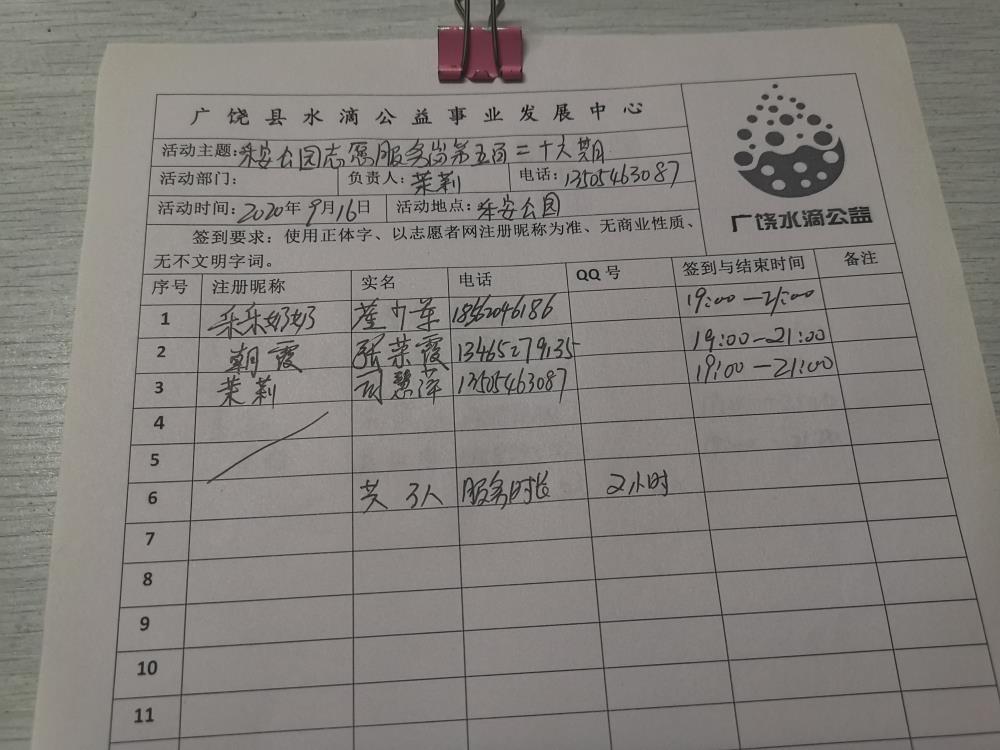 广饶县水滴公益事业发展中心
活动主题:乐安公园志愿服务岗第五百二十六期
活动部门: 负责人:茉莉 电话:13505463087
活动时间:2020年9月16日 活动地点:乐安公园
签到要求:使用正体字、以志愿者网注册昵称为准、无商业性质、
无不文明字词。
广饶水滴公益
序号 注册昵称 实名 电话 QQ号 签到与结束时间 备注
1 乐乐奶奶 18562046186 19:00-21:00
2 朝霞 张荣霞 13465279135 19:00-21:00
3 茉莉 司慧萍 13505463087 19:00-21:00
4
5
6 共 3人 服务时长 2小时
7
8
9
10
11